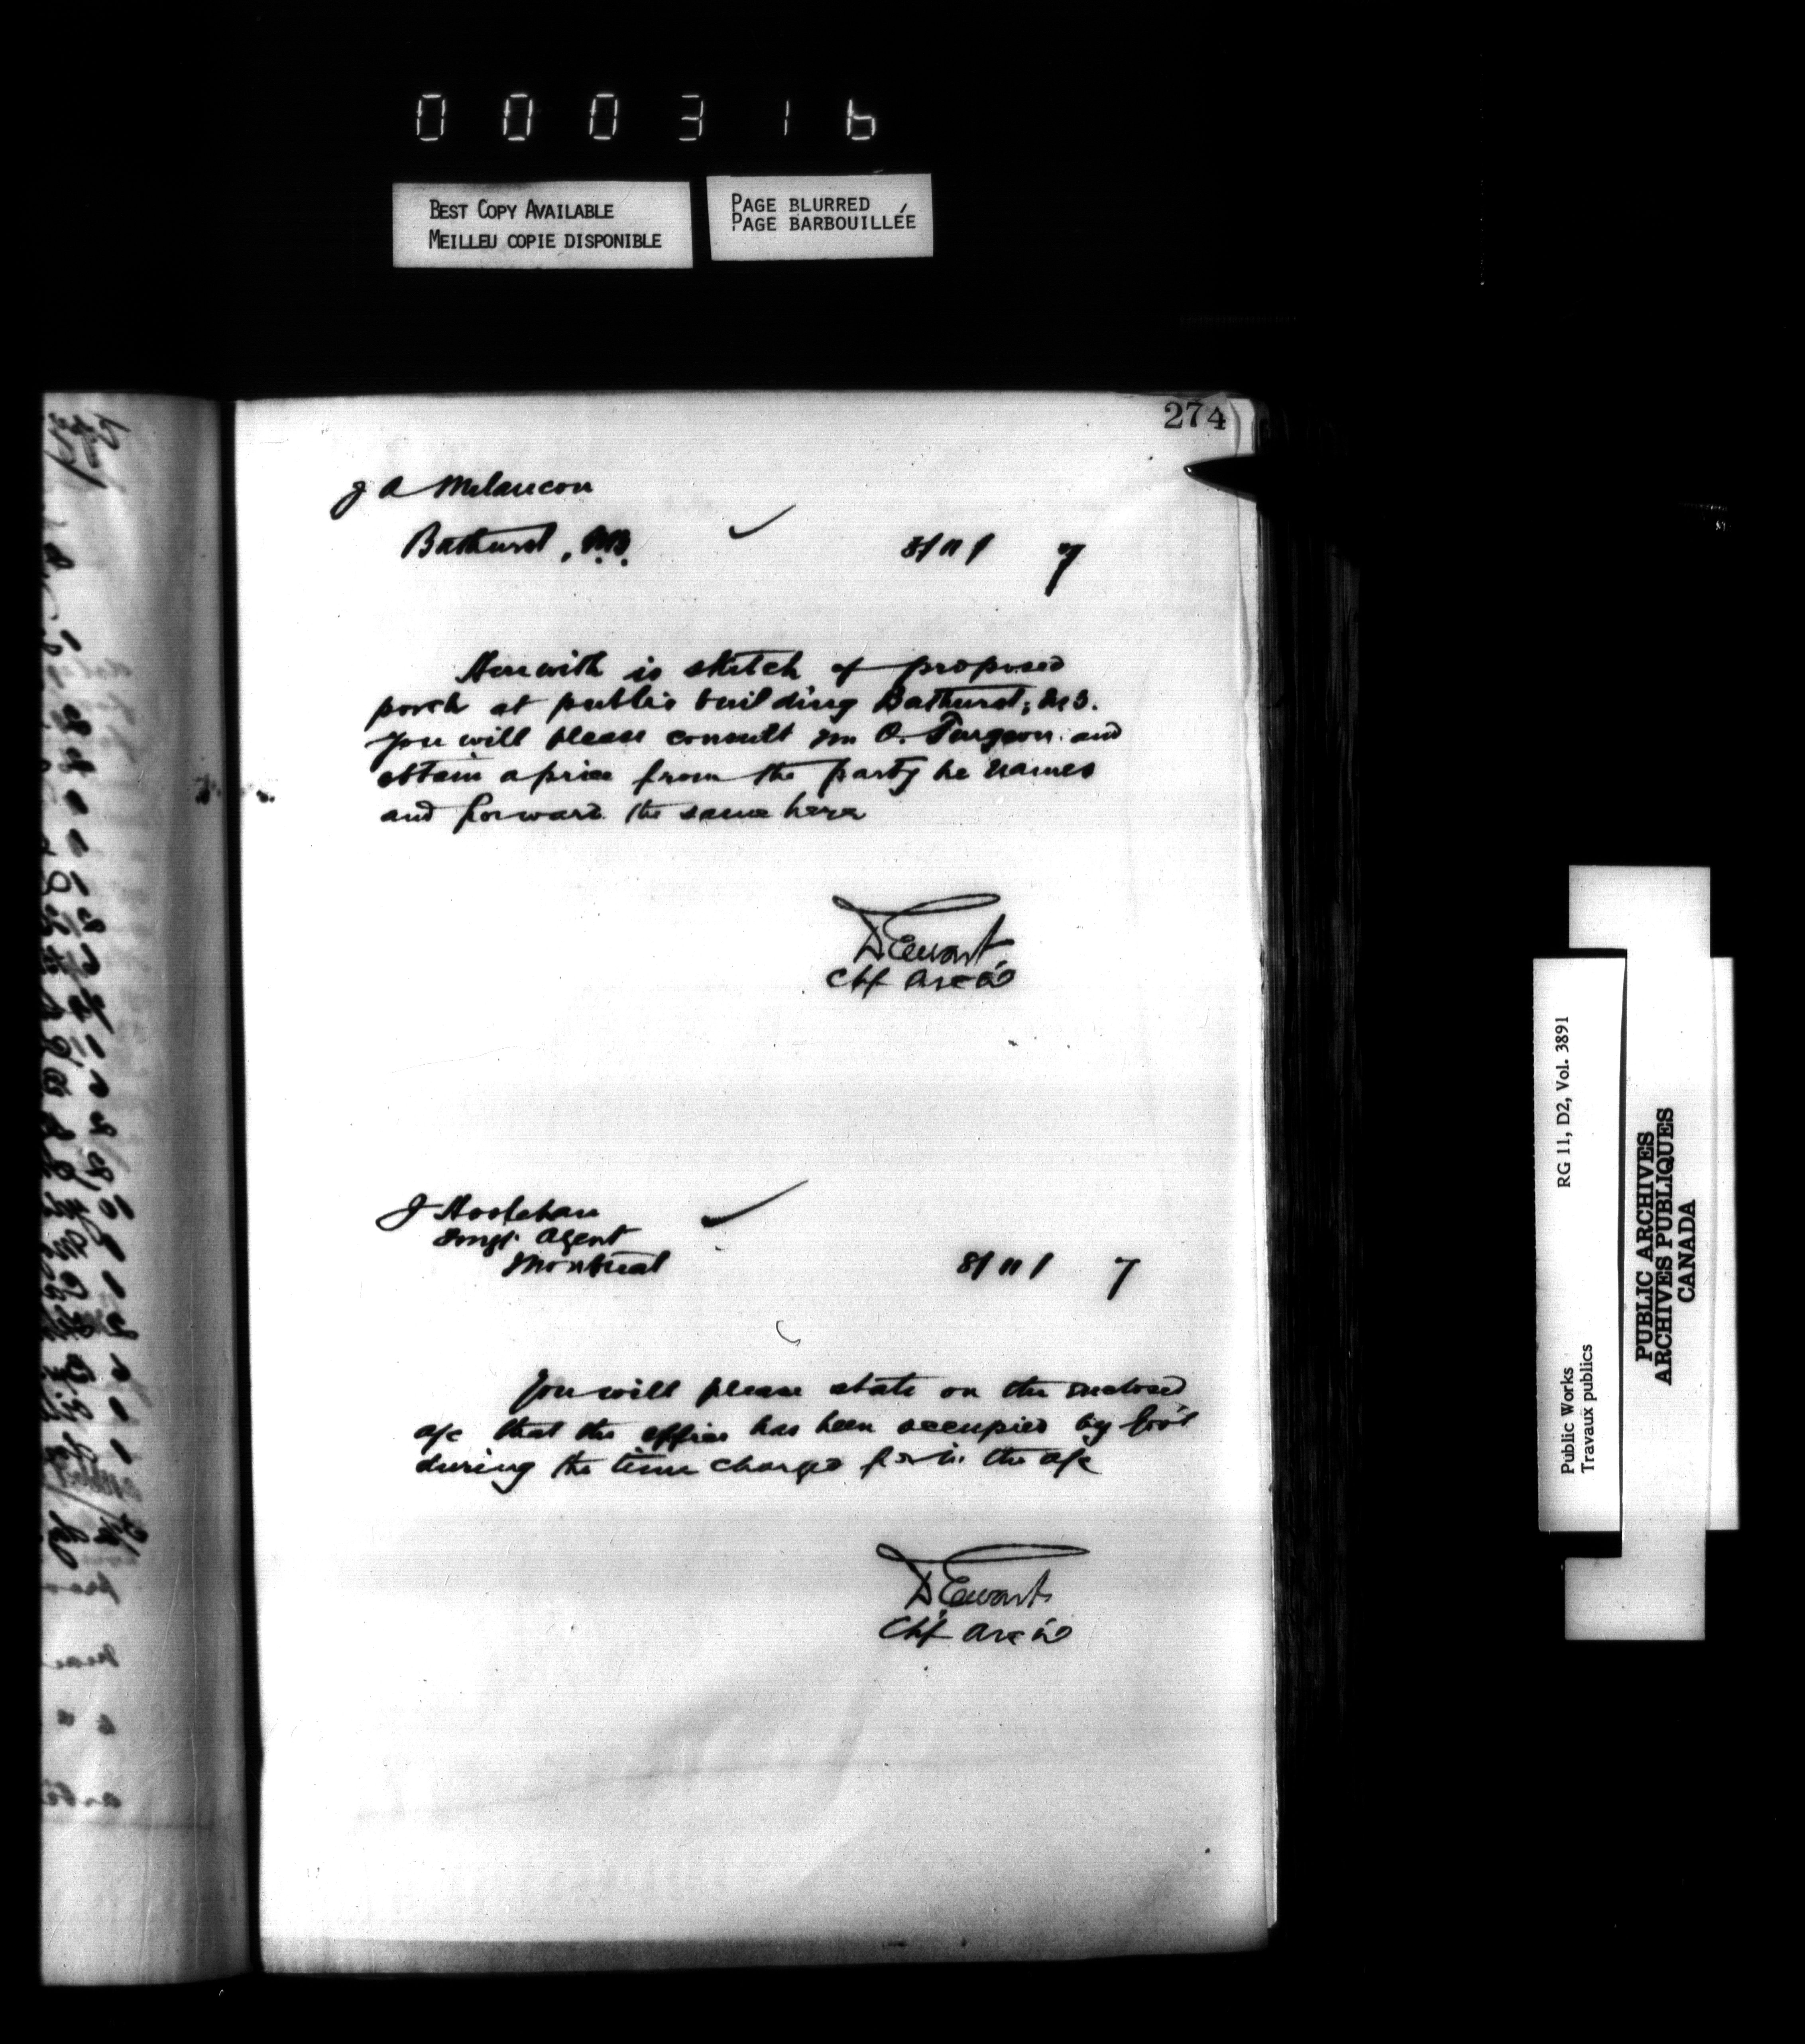 000316
BEST COPY AVAILABLE
MEILLEU COPIE DISPONIBLE
PAGE BLURRED
PAGE BARBOUILLÉE
274
J A Melancon
Bathurst, N.B.
8/11/ 7
Herewith is sketch of proposed
porch at public building Bathurst, N.B.
You will please consult Mr O. Turgeon and
obtain a price from the party he names
and forward the same here
D Ewart
Chf Arct
J Hoolahan
Imgt Agent
Montreal
8/11/ 7
You will please state on the enclosed
a/c that the office has been occupied by Gov't
during the time charged for in the a/c
D Ewart
Chf Arct
RG 11, D2, Vol. 3891
Public Works
Travaux publics
PUBLIC ARCHIVES
ARCHIVES PUBLIQUES
CANADA